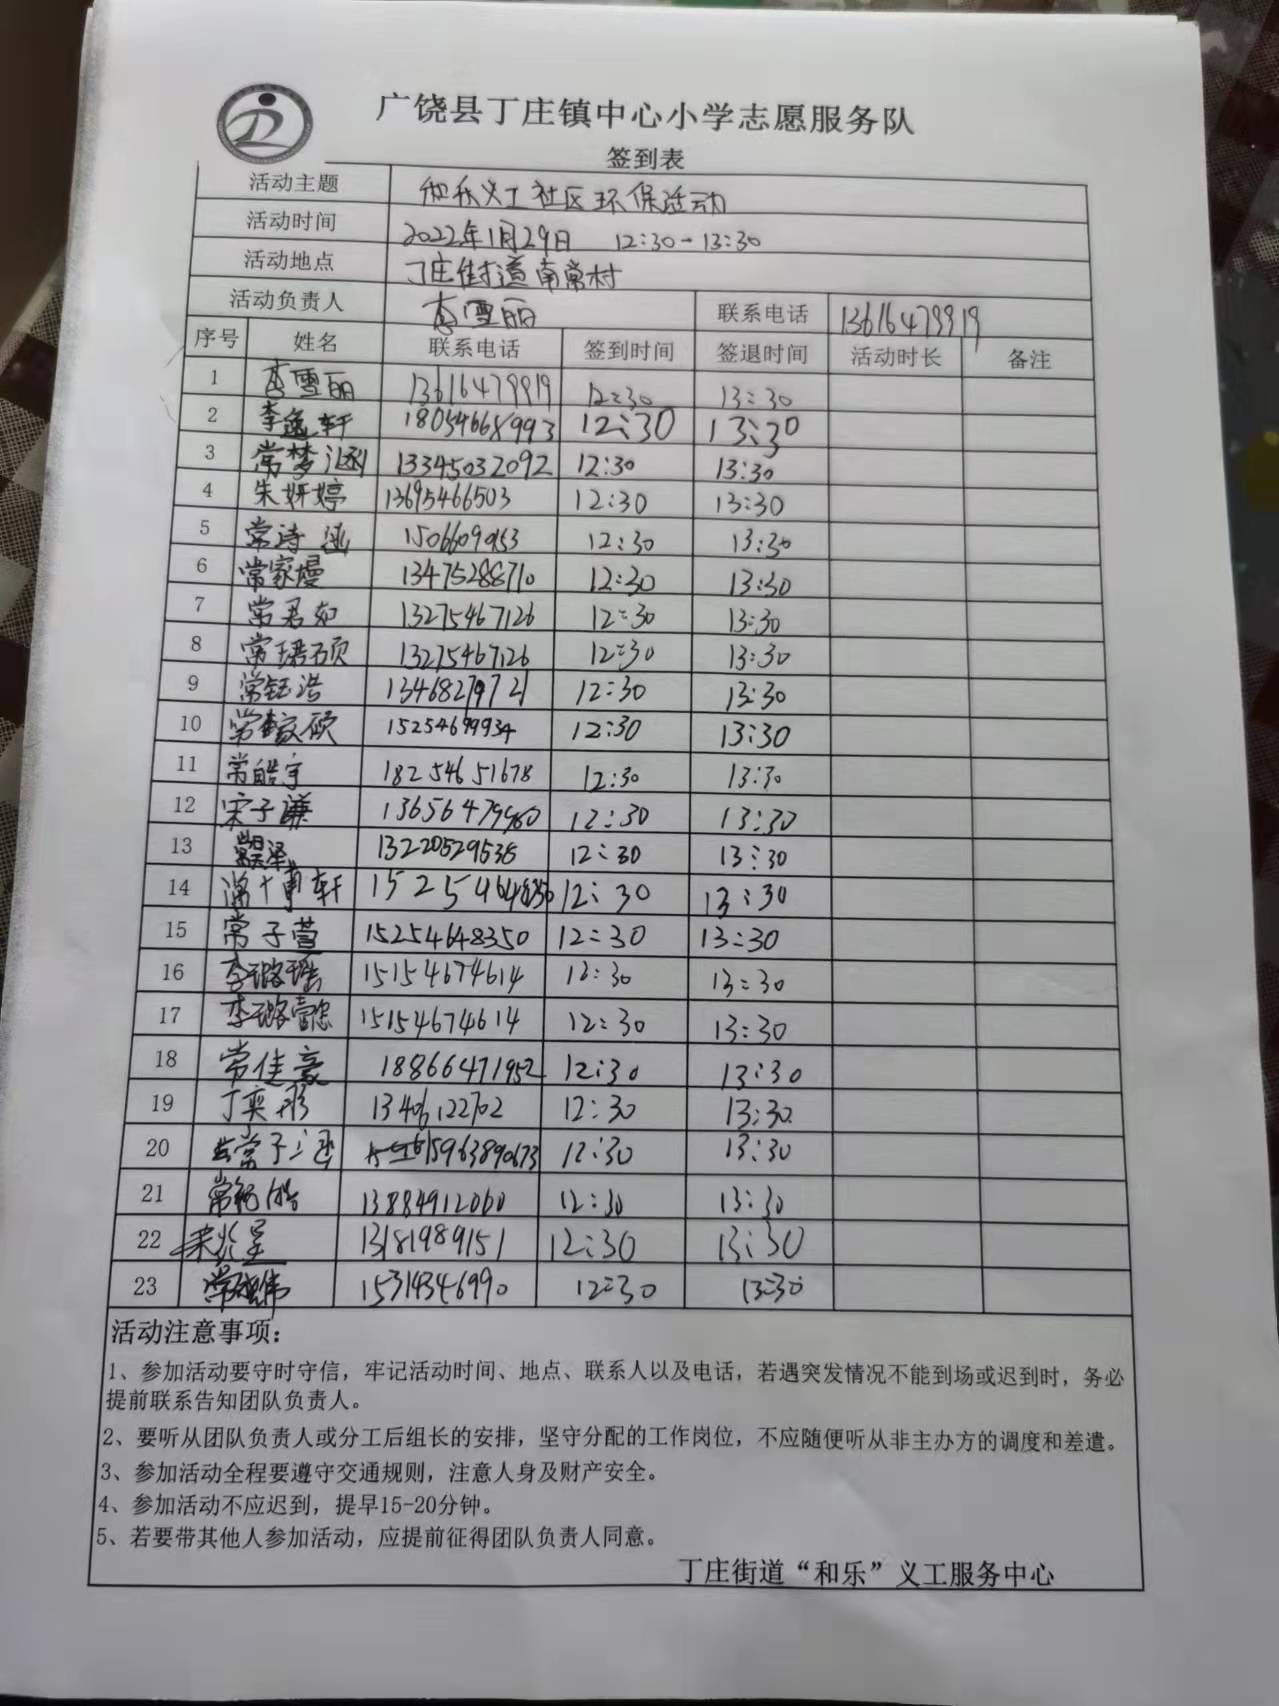 广饶县丁庄镇中心小学志愿服务队
签到表
活动主题 义工社区环保活动
活动时间 2022年1月29日 12:30-13:30
活动地点 丁庄街道南常村
活动负责人 李雪丽 联系电话 13616479919
序号 姓名 联系电话 签到时间 签退时间 活动时长 备注
1 李雪丽 13616479919 12:30 13:30
2 李逸轩 18054668993 12:30 13:30
3 常梦涵 13345032092 12:30 13:30
4 朱妍婷 13695466503 12:30 13:30
5 常诗涵 12:30 13:30
6 常家熳 13475288710 12:30 13:30
7 常君如 13275467126 12:30 13:30
8 常珺硕 13275467126 12:30 13:30
9 常钰浩 13468279721 12:30 13:30
10 15254699934 12:30 13:30
11 常皓宇 18254651678 12:30 13:30
12 宋子谦 12:30 13:30
13 13220529538 12:30 13:30
14 常博轩 12:30 13:30
15 常子萱 15254648350 12:30 13:30
16 李璐瑶 15154674614 12:30 13:30
17 李璐 15154674614 12:30 13:30
18 常佳豪 18866471952 12:30 13:30
19 丁奕彤 13406122702 12:30 13:30
20 常子涵 15963890673 12:30 13:30
21 13884912060 12:30 13:30
22 13181989151 12:30 13:30
23 12:30 13:30
活动注意事项：
1、参加活动要守时守信，牢记活动时间、地点、联系人以及电话，若遇突发情况不能到场或迟到时，务必
提前联系告知团队负责人。
2、要听从团队负责人或分工后组长的安排，坚守分配的工作岗位，不应随便听从非主办方的调度和差遣。
3、参加活动全程要遵守交通规则，注意人身及财产安全。
4、参加活动不应迟到，提早15-20分钟。
5、若要带其他人参加活动，应提前征得团队负责人同意。
丁庄街道“和乐”义工服务中心